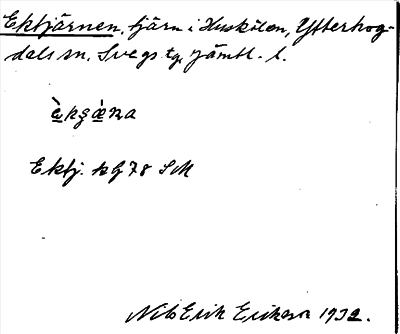 Ektjärnen, tjärn i Huskölen, Ytterhog-
dals sn, Svegs tg, Jämtl. l.
Ektj. kg 78 SM
Nils Erik Erikson 1932.